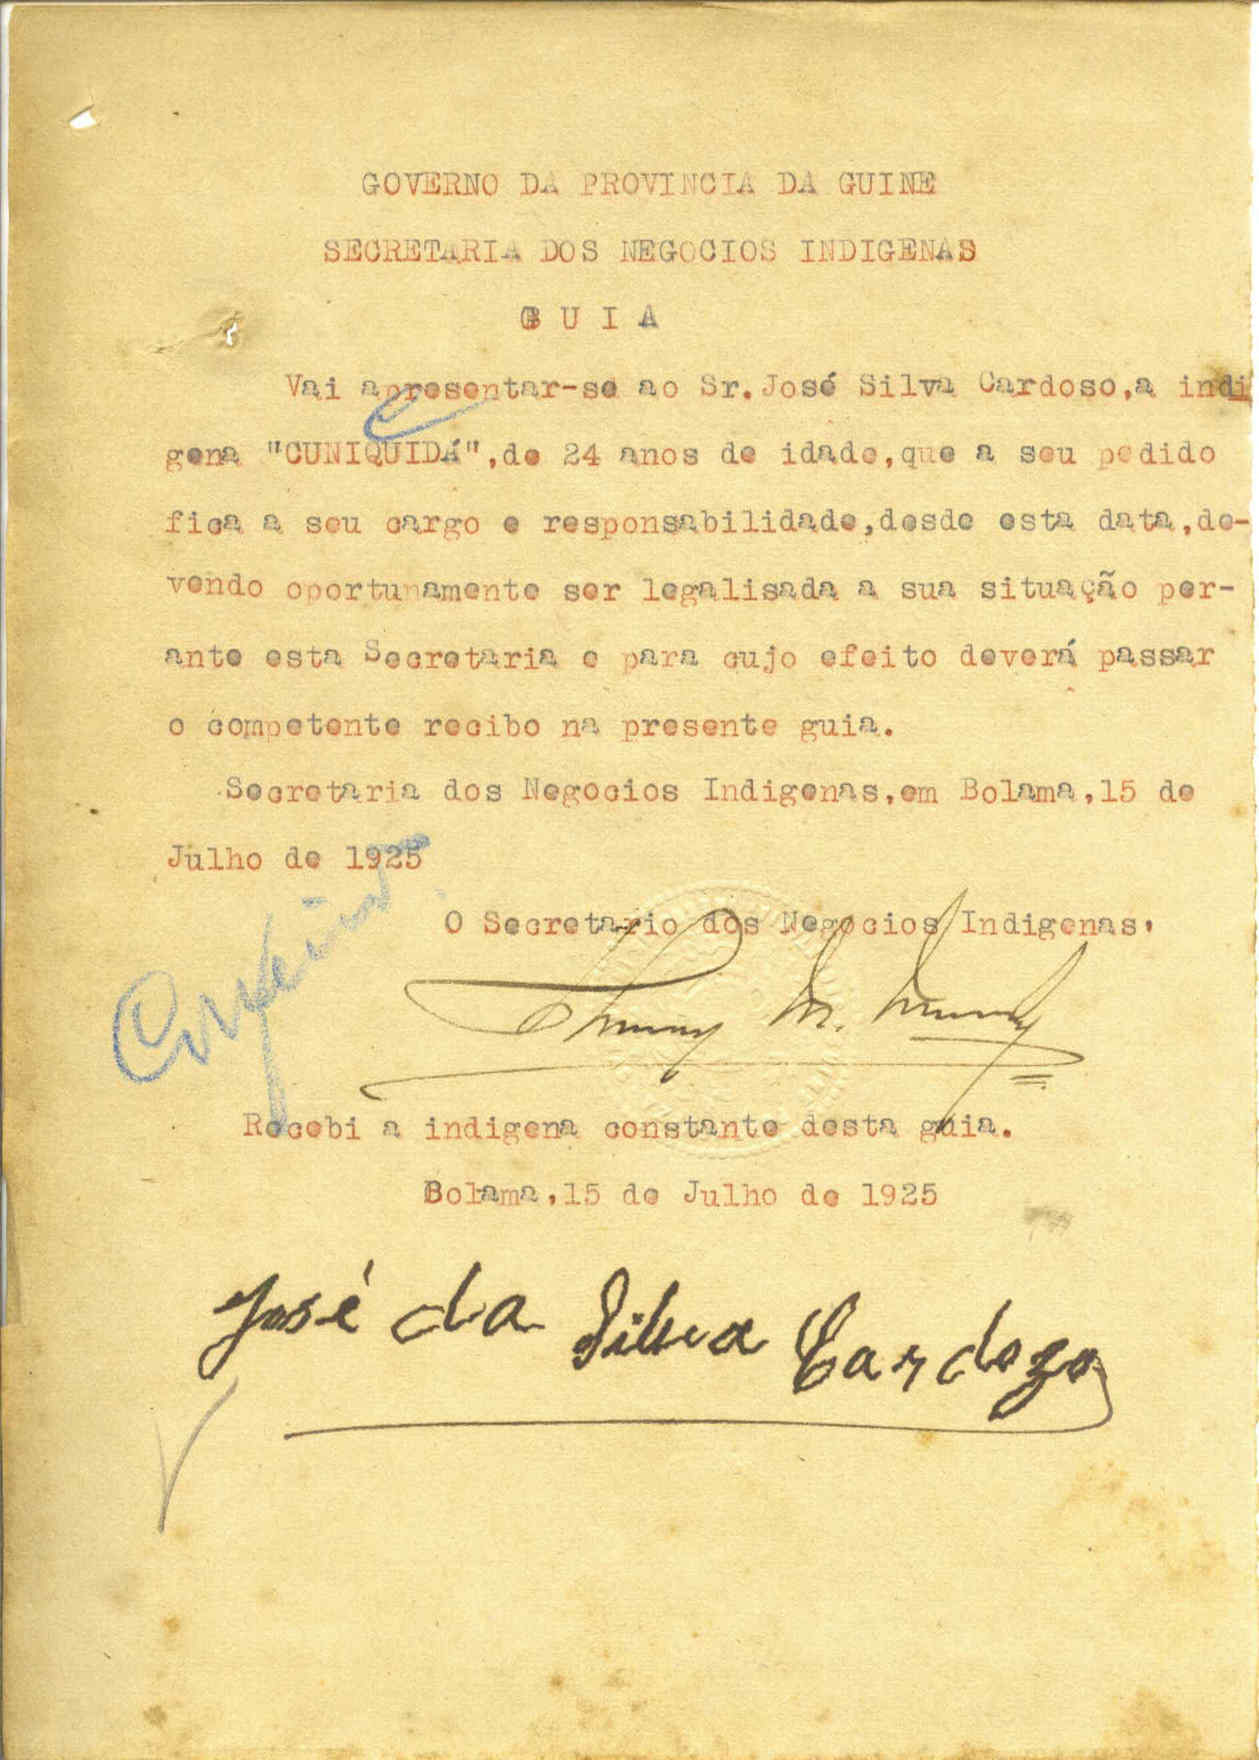 GOVERNO DA PROVINCIA DA GUINE
SECRETARIA DOS NEGOCIOS INDIGENAS
G U I A
Vai apresentar-se ao Sr.José Silva Cardoso,a indi
gena "CUNIQUIDÁ",de 24 anos de idade,que a seu pedido
fica a seu cargo e responsabilidade,desde esta data,de-
vendo oportunamente ser legalisada a sua situação per-
ante esta Secretaria e para cujo efeito deverá passar
o competente recibo na presente guia.
Secretaria dos Negocios Indigenas,em Bolama,15 de
Julho de 1925
O Secretario dos Negocios Indigenas,
Recebi a indigena constante desta guia.
Bolama,15 de Julho de 1925
José da Silva Cardozo